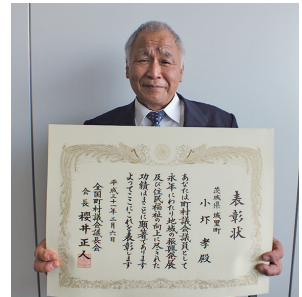 表彰状
茨城県 城里町
小圷 孝 殿
あなたは町村議会議員として
永年にわたり地域の振興発展
及び住民福祉の向上に尽くされた
功績はまことに顕著であります
よってここにこれを表彰します
平成二十一年二月六日
全国町村議会議長会
会長 櫻井正人